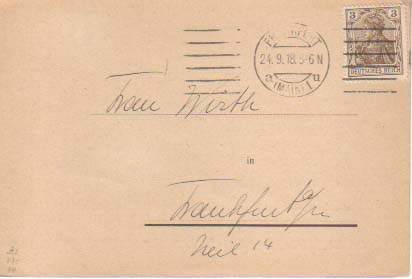 3 3
FRANKFURT
24.9.18.5-6N
DEUTSCHES REICH
a u
(MAIN)
Frau Wirth
in
Frankfurt a/M
Zeil 14